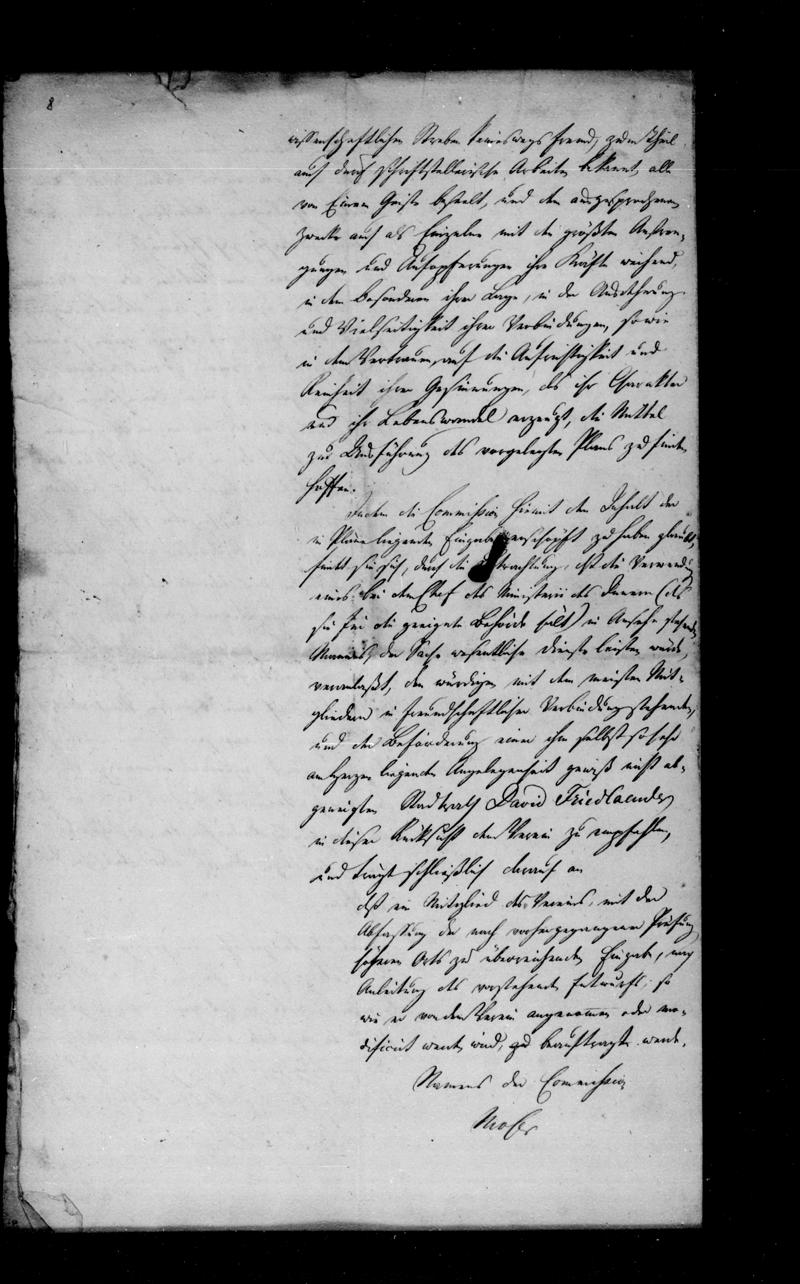 8
wissenschaftlichen Streben keineswegs fremd, zum Theil
auch durch schriftstellerische Arbeiten bekannt, alle
von Einem Geiste beseelt, und dem ausgesprochenen
Zwecke auch als Einzelne mit den größten Anstren-
gungen und Aufopferungen ihre Kräfte weihend,
in dem Besonderen ihrer Lage, in der Ausdehnung
und Vielseitigkeit ihrer Verbindungen, so wie
in dem Vertrauen, auf die Aufrichtigkeit und
Reinheit ihrer Gesinnungen, das ihr Charakter
und ihr Lebenswandel erzeugt, die Mittel
zur Ausführung des vorgelegten Plans zu finden
hoffen.
Indem die Commission hiermit den Inhalt der
im Plane liegenden Eingabe erschöpft zu haben glaubt,
findet sie sich, durch die Betrachtung, daß die Verwendung
eines bei dem Chef des Ministerii des Innern (das
sie für die geeignete Behörde hält) in Ansehn stehenden
Mannes, der Sache wesentliche Dienste leisten würde,
veranlaßt, den würdigen mit den meisten Mit-
gliedern in freundschaftlicher Verbindung stehenden,
und der Beförderung einer ihm selbst so sehr
am Herzen liegenden Angelegenheit gewiß nicht ab-
geneigten Stadtrath David Friedlaender
in dieser Rücksicht dem Verein zu empfehlen,
und trägt schließlich darauf an
daß ein Mitglied des Vereins, mit der
Abfassung der nach vorhergegangener Prüfung
höheren Orts zu überreichenden Eingabe, nach
Anleitung des vorstehenden Entwurfs, so
wie er von dem Verein angenommen oder mo-
dificirt werden wird, zu beauftragen werde.
Namens der Commission
Moser